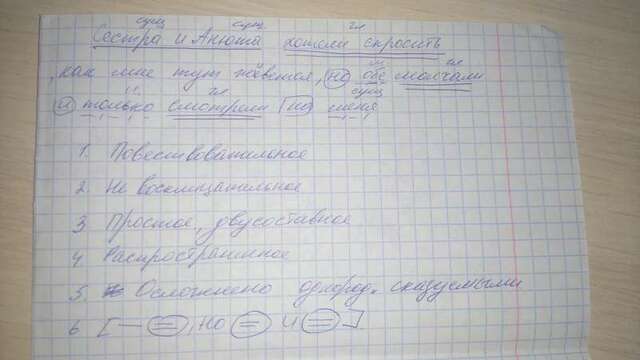 сущ сущ гл
Сестра и Анюта хотели спросить
, как мне тут живется, но обе молчали
и только смотрели на меня
1. Повествовательное
2. Не восклицательное
3 Простое, двусоставное
4 Распространенное
5. Осложнено однород. сказуемыми
6 [ — =, но = и = ]